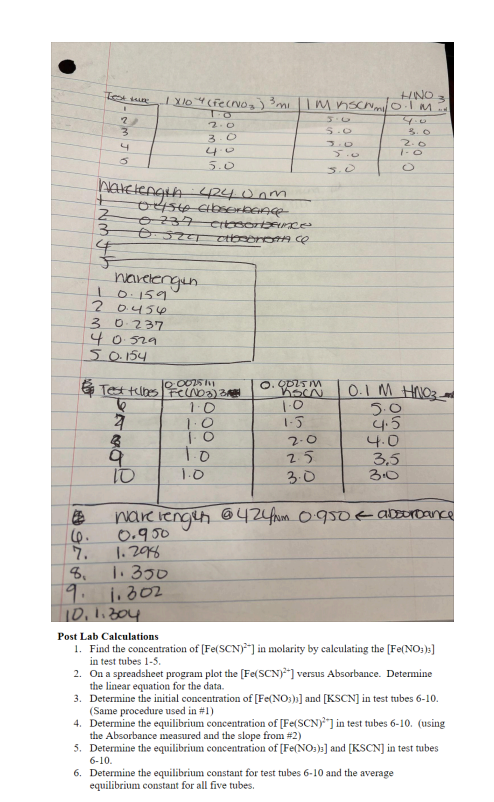 HNO3
Test tube 1 x10-4 (Fe(NO3)3 ml 1M KSCN ml 0.1 M
1 1.0 5.0 4.0
2 2.0 5.0 3.0
3 3.0 5.0 2.0
4 4.0 5.0 1.0
5 5.0 5.0 0
Wavelength 424.0nm
1 0.456 absorbance
2 0.237 absorbance
3 0.529 absorbance
4
5
wavelength
1 0.159
2 0.456
3 0.237
4 0.529
5 0.154
Test tubes 0.0025M Fe(NO3)3 0.0025M KSCN 0.1 M HNO3
6 1.0 1.0 5.0
7 1.0 1.5 4.5
8 1.0 2.0 4.0
9 1.0 2.5 3.5
10 1.0 3.0 3.0
wavelength @ 424nm 0.950 ← absorbance
6. 0.950
7. 1.298
8. 1.350
9. 1.302
10. 1.304
Post Lab Calculations
1. Find the concentration of [Fe(SCN)²⁺] in molarity by calculating the [Fe(NO₃)₃]
in test tubes 1-5.
2. On a spreadsheet program plot the [Fe(SCN)²⁺] versus Absorbance. Determine
the linear equation for the data.
3. Determine the initial concentration of [Fe(NO₃)₃] and [KSCN] in test tubes 6-10.
(Same procedure used in #1)
4. Determine the equilibrium concentration of [Fe(SCN)²⁺] in test tubes 6-10. (using
the Absorbance measured and the slope from #2)
5. Determine the equilibrium concentration of [Fe(NO₃)₃] and [KSCN] in test tubes
6-10.
6. Determine the equilibrium constant for test tubes 6-10 and the average
equilibrium constant for all five tubes.